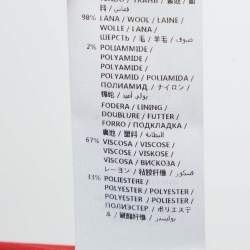 98% LANA / WOOL / LAINE /
WOLLE / LANA /
ШЕРСТЬ / 毛 / 羊毛 / صوف
2% POLIAMMIDE /
POLYAMIDE /
POLYAMID /
POLYAMID / POLIAMIDA /
ПОЛИАМИД / ナイロン /
FODERA / LINING /
DOUBLURE / FUTTER /
FORRO / ПОДКЛАДКА /
裏地 / 里料 / بطانة
67% VISCOSA / VISCOSE /
VISCOSE / VISKOSE /
VISCOSA / ВИСКОЗА /
レーヨン / 粘胶纤维 /
33% POLIESTERE /
POLYESTER / POLYESTER /
POLYESTER / POLIESTER /
ПОЛИЭСТЕР / ポリエステ
ル / 聚酯纤维 / بوليستر